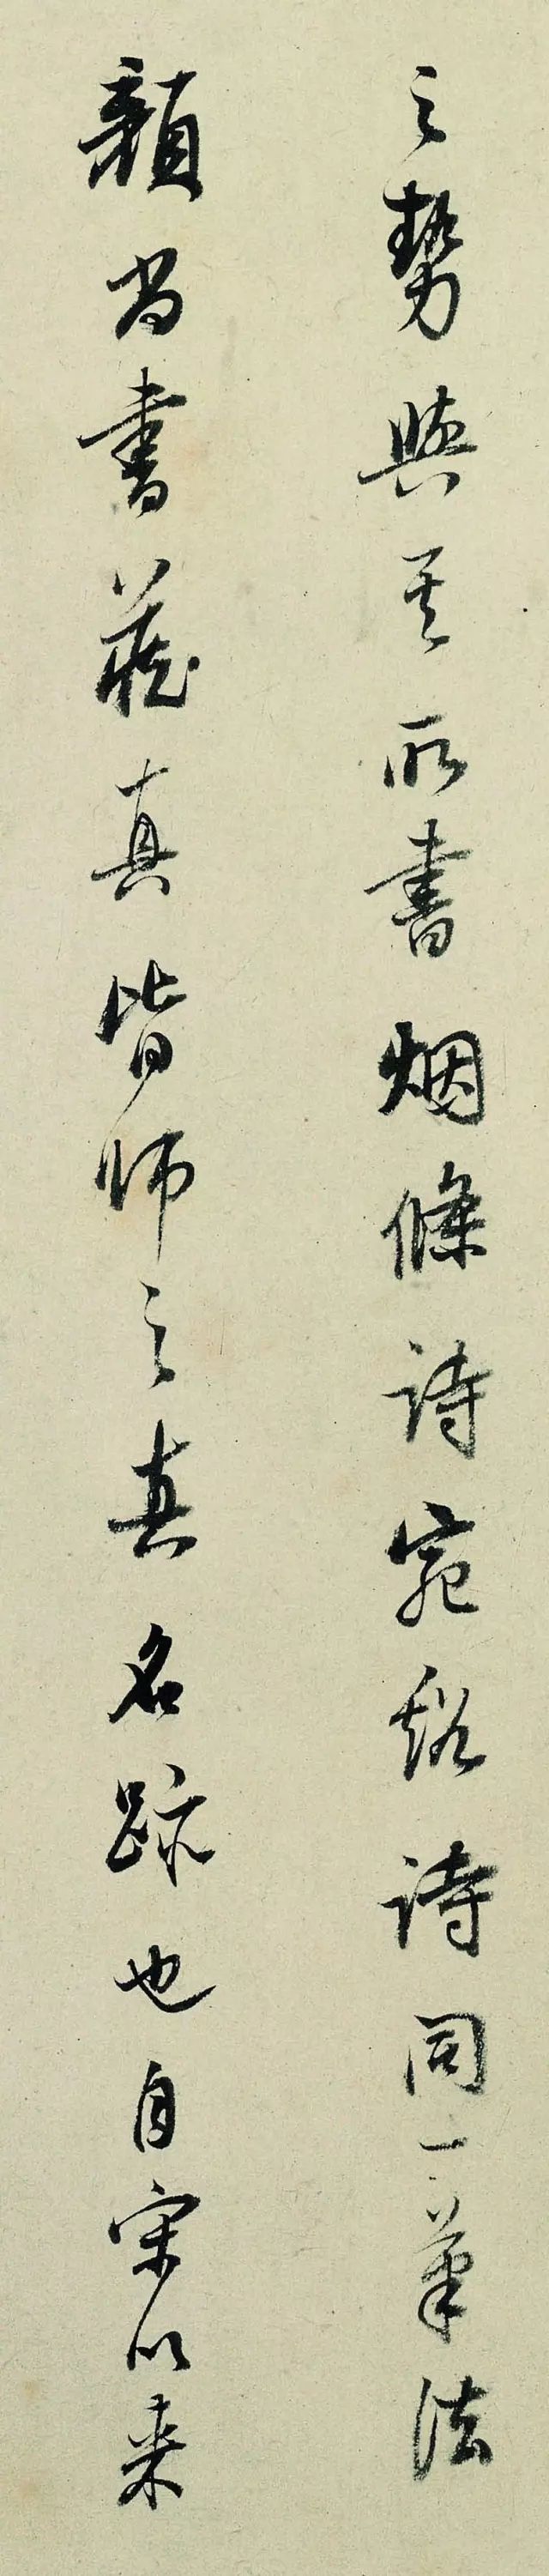 之勢與其所書烟條詩宛谿詩同一筆法
顏尚書藏真皆師之真名跡也自宋以来